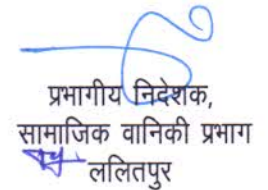 प्रभागीय निदेशक,
सामाजिक वानिकी प्रभाग
ललितपुर